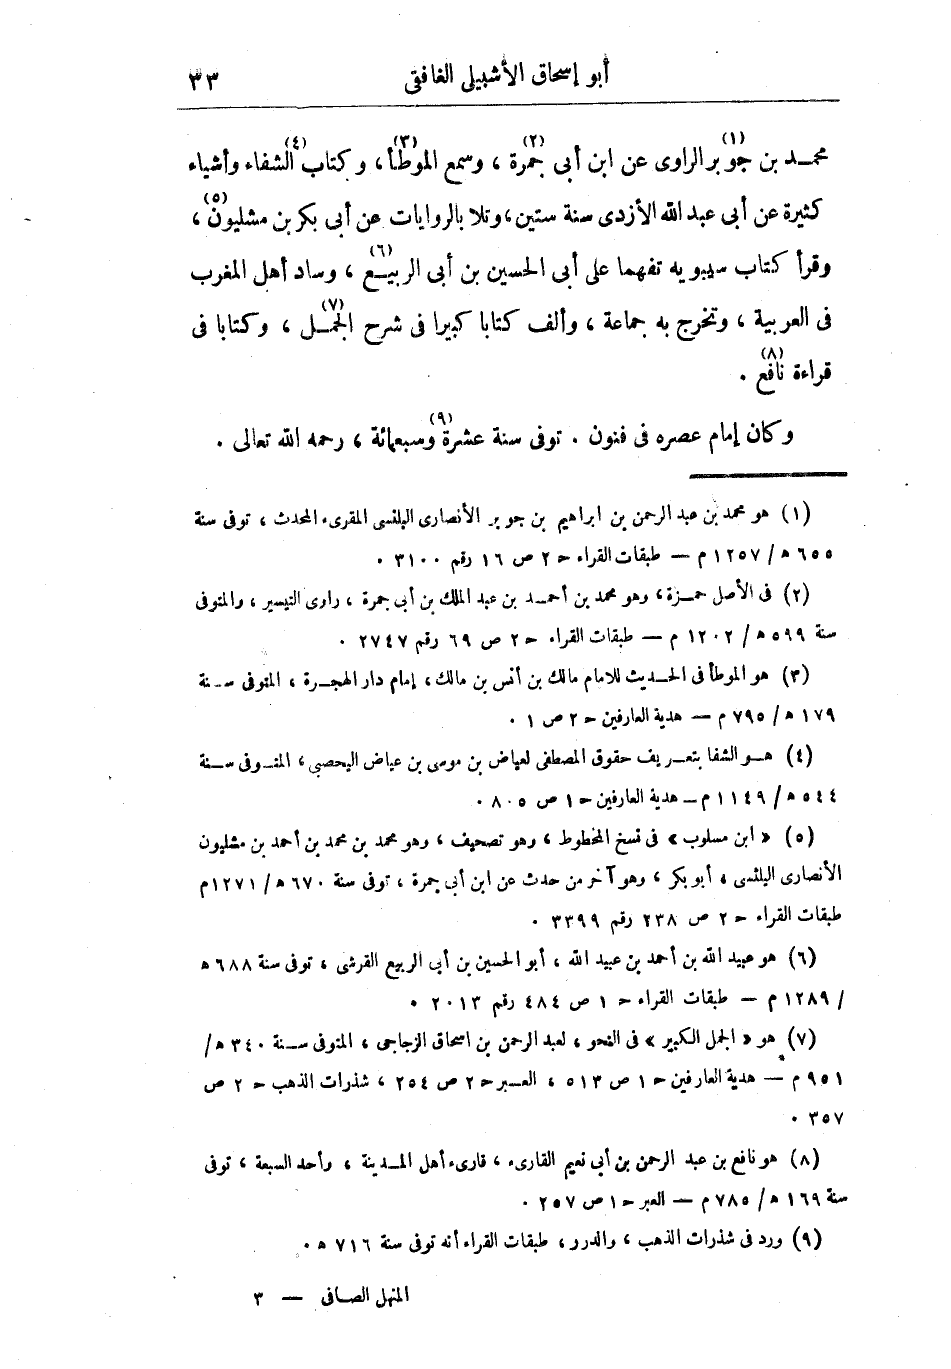 أبو إسحاق الأشبيلى الغافقى ٣٣
محمد بن جوبر(١) الراوى عن ابن أبى جمرة(٢) ، وسمع الموطأ(٣) ، وكتاب(٤) الشفاء وأشياء
كثيرة عن أبى عبد الله الأزدى سنة ستين ، وتلا بالروايات عن أبى بكر بن مشليون(٥) ،
وقرأ كتاب سيبويه تفهما على أبى الحسين بن أبى الربيع(٦) ، وساد أهل المغرب
فى العربية ، وتخرج به جماعة ، وألف كتابا كبيرا فى شرح الجمل(٧) ، وكتابا فى
قراءة نافع(٨) .
وكان إمام عصره فى فنون . توفى سنة عشرة(٩) وسبعمائة ، رحمه الله تعالى .
(١) هو محمد بن عبد الرحمن بن ابراهيم بن جوبر الأنصارى البلنسى المقرىء المحدث ، توفى سنة
٦٥٥ ه / ١٢٥٧ م — طبقات القراء ح ٢ ص ١٦ رقم ٣١٠٠ .
(٢) فى الأصل حمزة ، وهو محمد بن أحمد بن عبد الملك بن أبى جمرة ، راوى التيسير ، والمتوفى
سنة ٥٩٩ ه / ١٢٠٢ م — طبقات القراء ح ٢ ص ٦٩ رقم ٢٧٤٧ .
(٣) هو الموطأ فى الحديث للامام مالك بن أنس بن مالك ، إمام دار الهجرة ، المتوفى سنة
١٧٩ ه / ٧٩٥ م — هدية العارفين ح ٢ ص ١ .
(٤) هو الشفا بتعريف حقوق المصطفى لعياض بن موسى بن عياض اليحصبى ، المتوفى سنة
٥٤٤ ه / ١١٤٩ م — هدية العارفين ح ١ ص ٨٠٥ .
(٥) « ابن مسلوب » فى نسخ المخطوط ، وهو تصحيف ، وهو محمد بن محمد بن أحمد بن مشليون
الأنصارى البلنسى ، أبو بكر ، وهو آخر من حدث عن ابن أبى جمرة ، توفى سنة ٦٧٠ ه / ١٢٧١ م
طبقات القراء ح ٢ ص ٢٣٨ رقم ٣٣٩٩ .
(٦) هو عبيد الله بن أحمد بن عبيد الله ، أبو الحسين بن أبى الربيع القرشى ، توفى سنة ٦٨٨ ه
/ ١٢٨٩ م — طبقات القراء ح ١ ص ٤٨٤ رقم ٢٠١٣ .
(٧) هو « الجمل الكبير » فى النحو ، لعبد الرحمن بن اسحاق الزجاجى ، المتوفى سنة ٣٤٠ ه /
٩٥١ م — هدية العارفين ح ١ ص ٥١٣ ، العبر ح ٢ ص ٢٥٤ ، شذرات الذهب ح ٢ ص
٣٥٧ .
(٨) هو نافع بن عبد الرحمن بن أبى نعيم القارىء ، قارىء أهل المدينة ، وأحد السبعة ، توفى
سنة ١٦٩ ه / ٧٨٥ م — العبر ح ١ ص ٢٥٧ .
(٩) ورد فى شذرات الذهب ، والدرر ، طبقات القراء أنه توفى سنة ٧١٦ ه .
المنهل الصافى — ٣